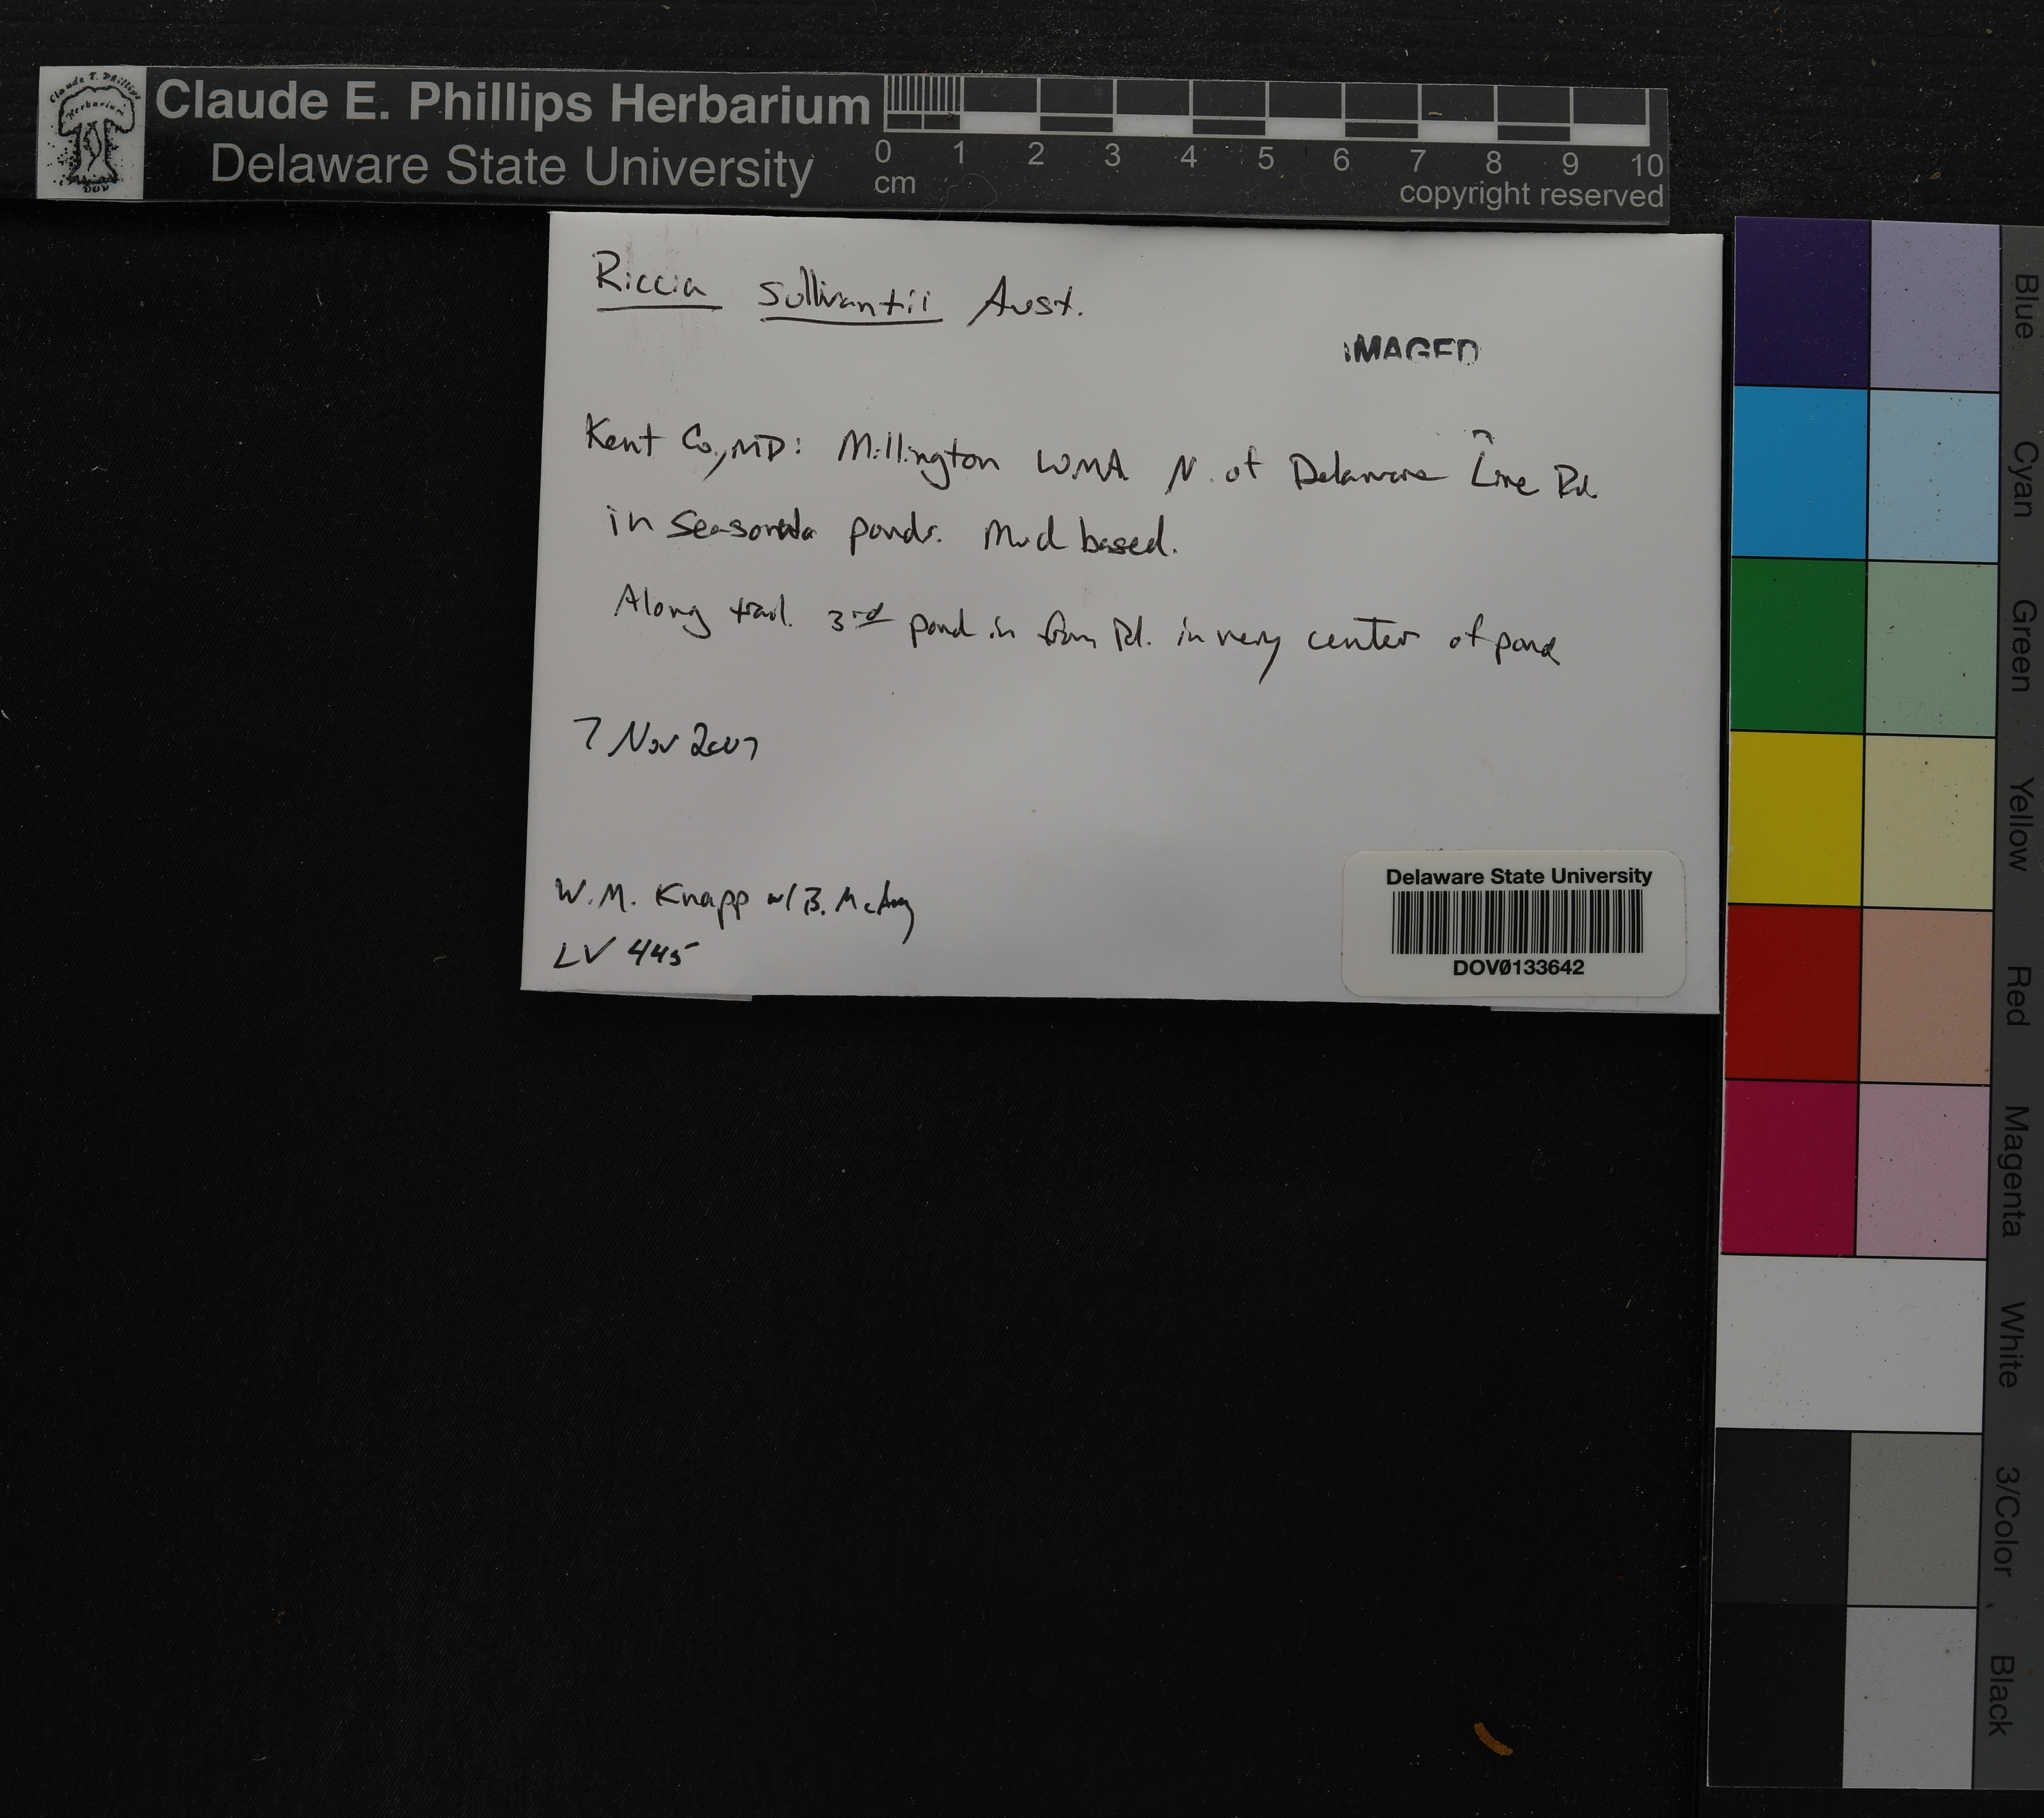 Claude E. Phillips Herbarium
Delaware State University
0 1 2 3 4 5 6 7 8 9 10
cm
copyright reserved
Riccia sullivantii Aust.
IMAGED
Kent Co., MD: Millington WMA N. of Delaware Line Rd.
in seasonal ponds. Mud based.
Along trail. 3rd pond in from Rd. in very center of pond
7 Nov 2007
W.M. Knapp w/ B. McAvoy
LV 445
Delaware State University
DOVØ133642
Blue
Cyan
Green
Yellow
Red
Magenta
White
3/Color
Black